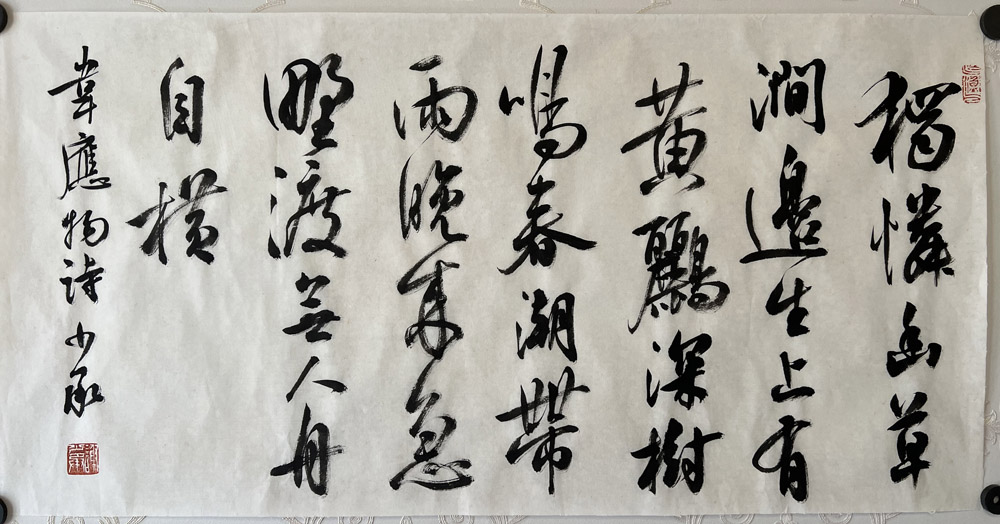 獨憐幽草
澗邊生上有
黃鸝深樹
鳴春潮帶
雨晚來急
野渡無人舟
自橫
韋應物詩 少承